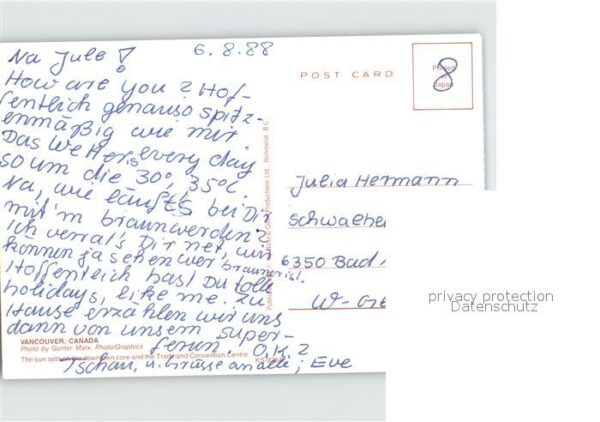 6.8.88
Na Jule!
How are you? Hof-
fentlich genauso spitz-
enmäßig wie mir
Das Wetter is every day
so um die 30°, 35°C.
Na, wie läufts bei Dir
mit'm braunwerden?
Ich verrat's Dir net, wir
können ja sehen wer brauner ist.
Hoffentlich hast Du tolle
holidays, like me. Zu
Hause erzählen wir uns
dann von unsern super-
ferien. O.K.?
Tschau, u. grüsse an alle; Eve
POST CARD
8
Julia Hermann
Schwalbe
6350 Bad
W-Ge
VANCOUVER, CANADA
Photo by Gunter Marx, Photo/Graphics
The sun sets on the downtown core and the Trade and Convention Centre.
privacy protection
Datenschutz